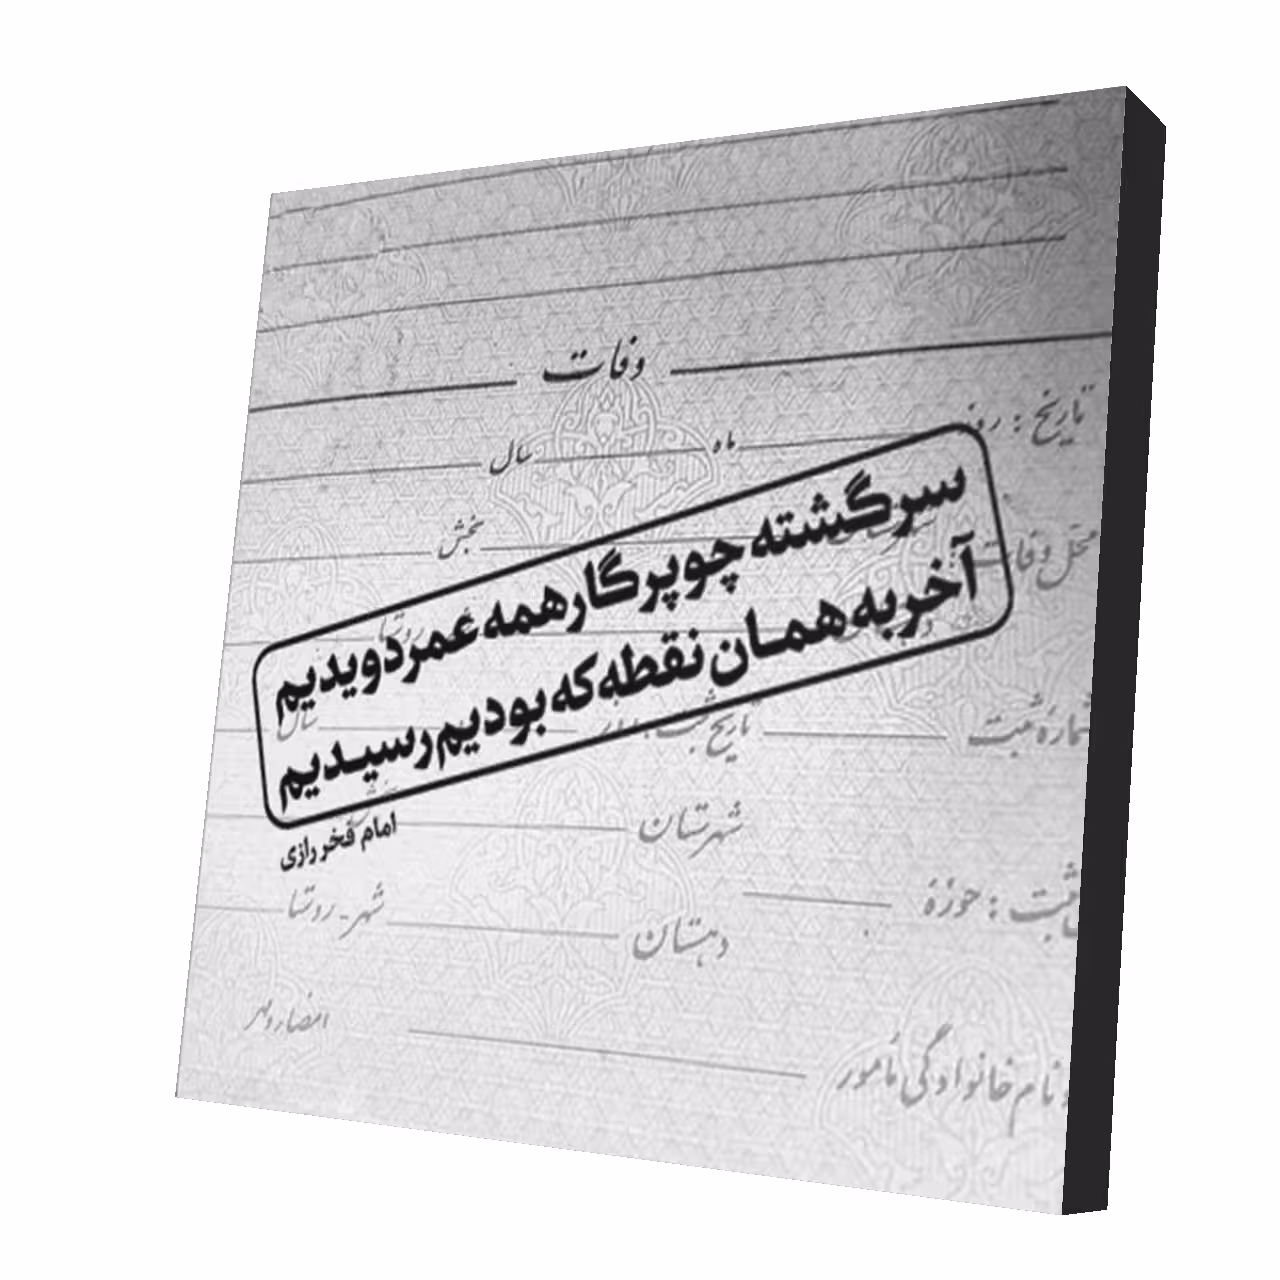 وفات
تاریخ : روز
ماه
سال
محل وفات
بخش
سرگشته چو پرگار همه عمر دویدیم
آخر به همان نقطه که بودیم رسیدیم
امام فخر رازی
شماره ثبت
تاریخ ثبت
سال
شهرستان
ثبت : حوزهٔ
دهستان
شهر - روستا
و نام خانوادگی مأمور
امضاء و مهر